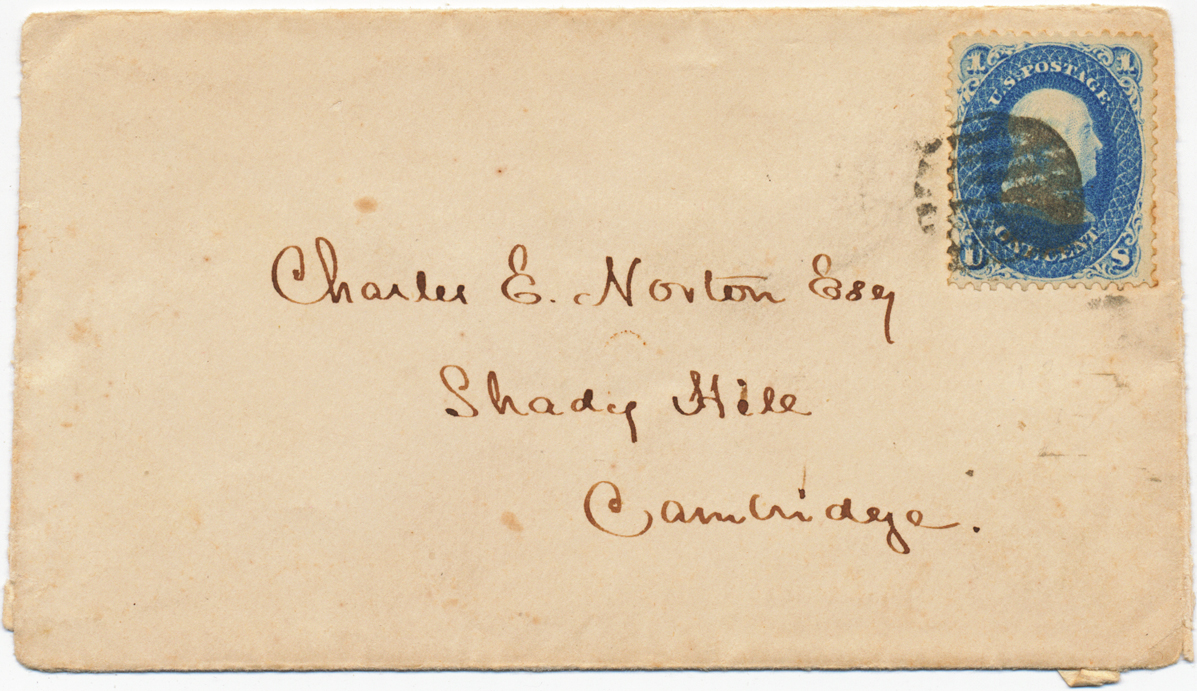 1 1
U.S. POSTAGE
ONE CENT
U S
Charles E. Norton Esq
Shady Hill
Cambridge.